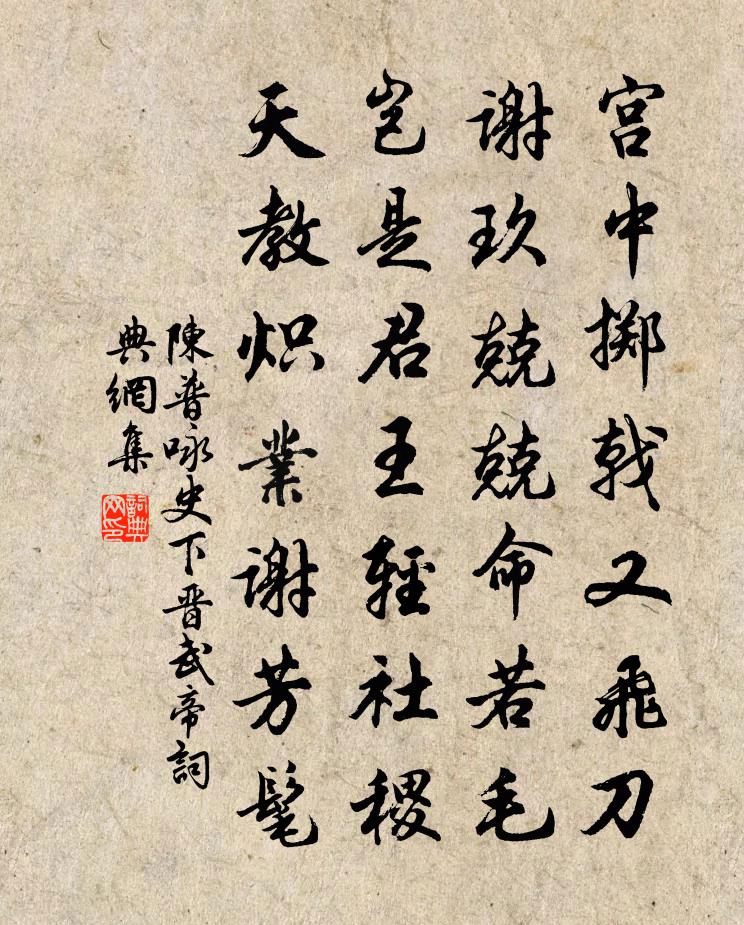 宫中掷戟又飛刀
谢玖兢兢命若毛
岂是君王輕社稷
天教炽業谢芳髦
陳普咏史下晋武帝詞
典網集
詞典网印